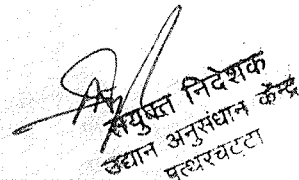 संयुक्त निदेशक
उद्यान अनुसंधान केन्द्र
पत्थरचट्टा